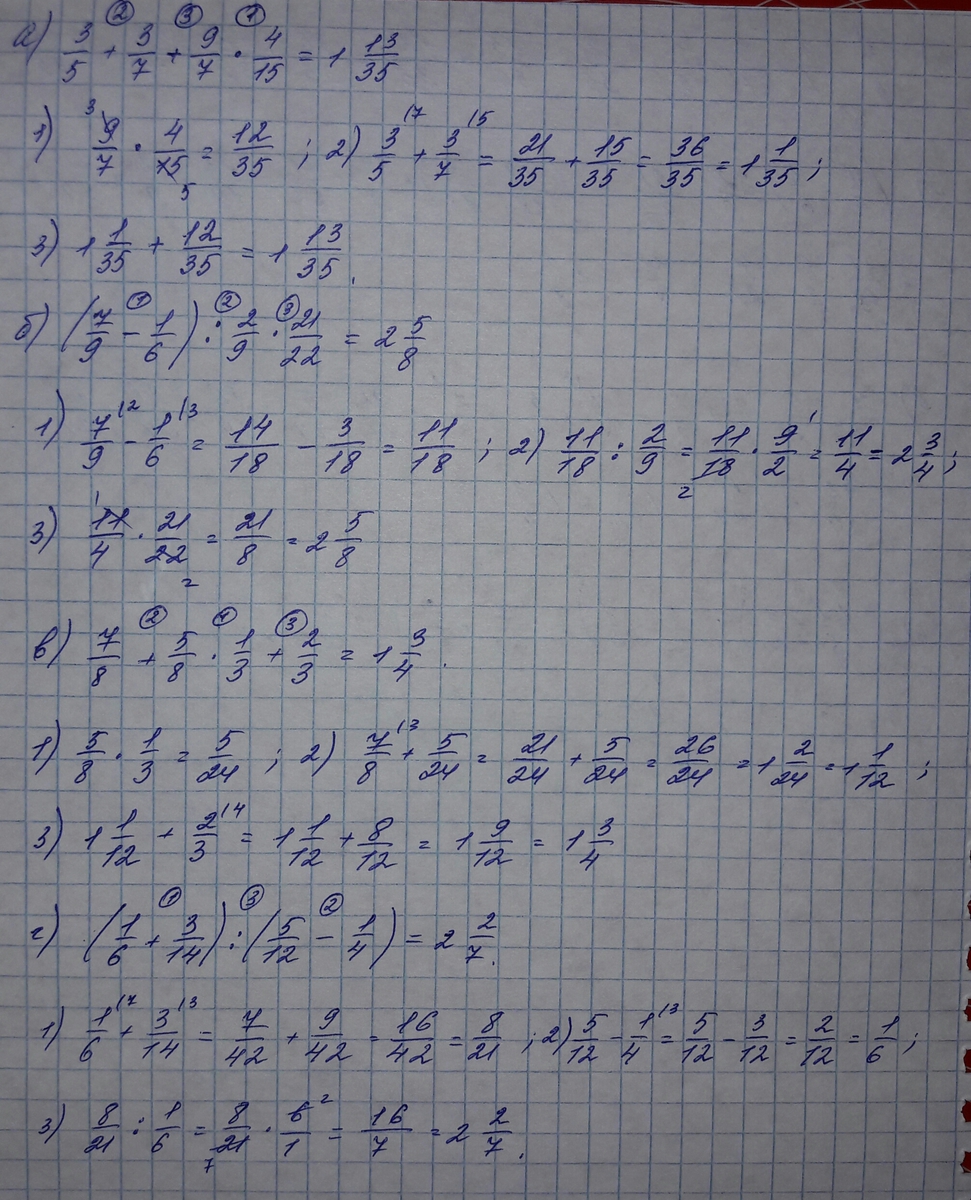 а) 3/5 + 3/7 + 9/7 · 4/15 = 1 13/35
1) 9/7 · 4/15 = 12/35 ; 2) 3/5 + 3/7 = 21/35 + 15/35 = 36/35 = 1 1/35 ;
3) 1 1/35 + 12/35 = 1 13/35.
б) (7/9 − 1/6) : 2/9 · 21/22 = 2 5/8
1) 7/9 − 1/6 = 14/18 − 3/18 = 11/18 ; 2) 11/18 : 2/9 = 11/18 · 9/2 = 11/4 = 2 3/4 ;
3) 11/4 · 21/22 = 21/8 = 2 5/8
в) 7/8 + 5/8 · 1/3 + 2/3 = 1 3/4.
1) 5/8 · 1/3 = 5/24 ; 2) 7/8 + 5/24 = 21/24 + 5/24 = 26/24 = 1 2/24 = 1 1/12 ;
3) 1 1/12 + 2/3 = 1 1/12 + 8/12 = 1 9/12 = 1 3/4
г) (1/6 + 3/14) : (5/12 − 1/4) = 2 2/7.
1) 1/6 + 3/14 = 7/42 + 9/42 = 16/42 = 8/21 ; 2) 5/12 − 1/4 = 5/12 − 3/12 = 2/12 = 1/6 ;
3) 8/21 : 1/6 = 8/21 · 6/1 = 16/7 = 2 2/7.